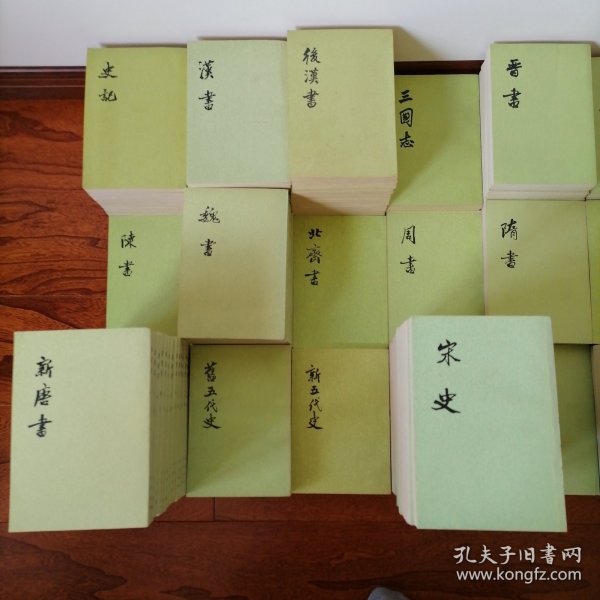 史記
漢書
後漢書
三國志
晋書
陳書
魏書
北齊書
周書
隋書
新唐書
舊五代史
新五代史
宋史
孔夫子旧书网
www.kongfz.com